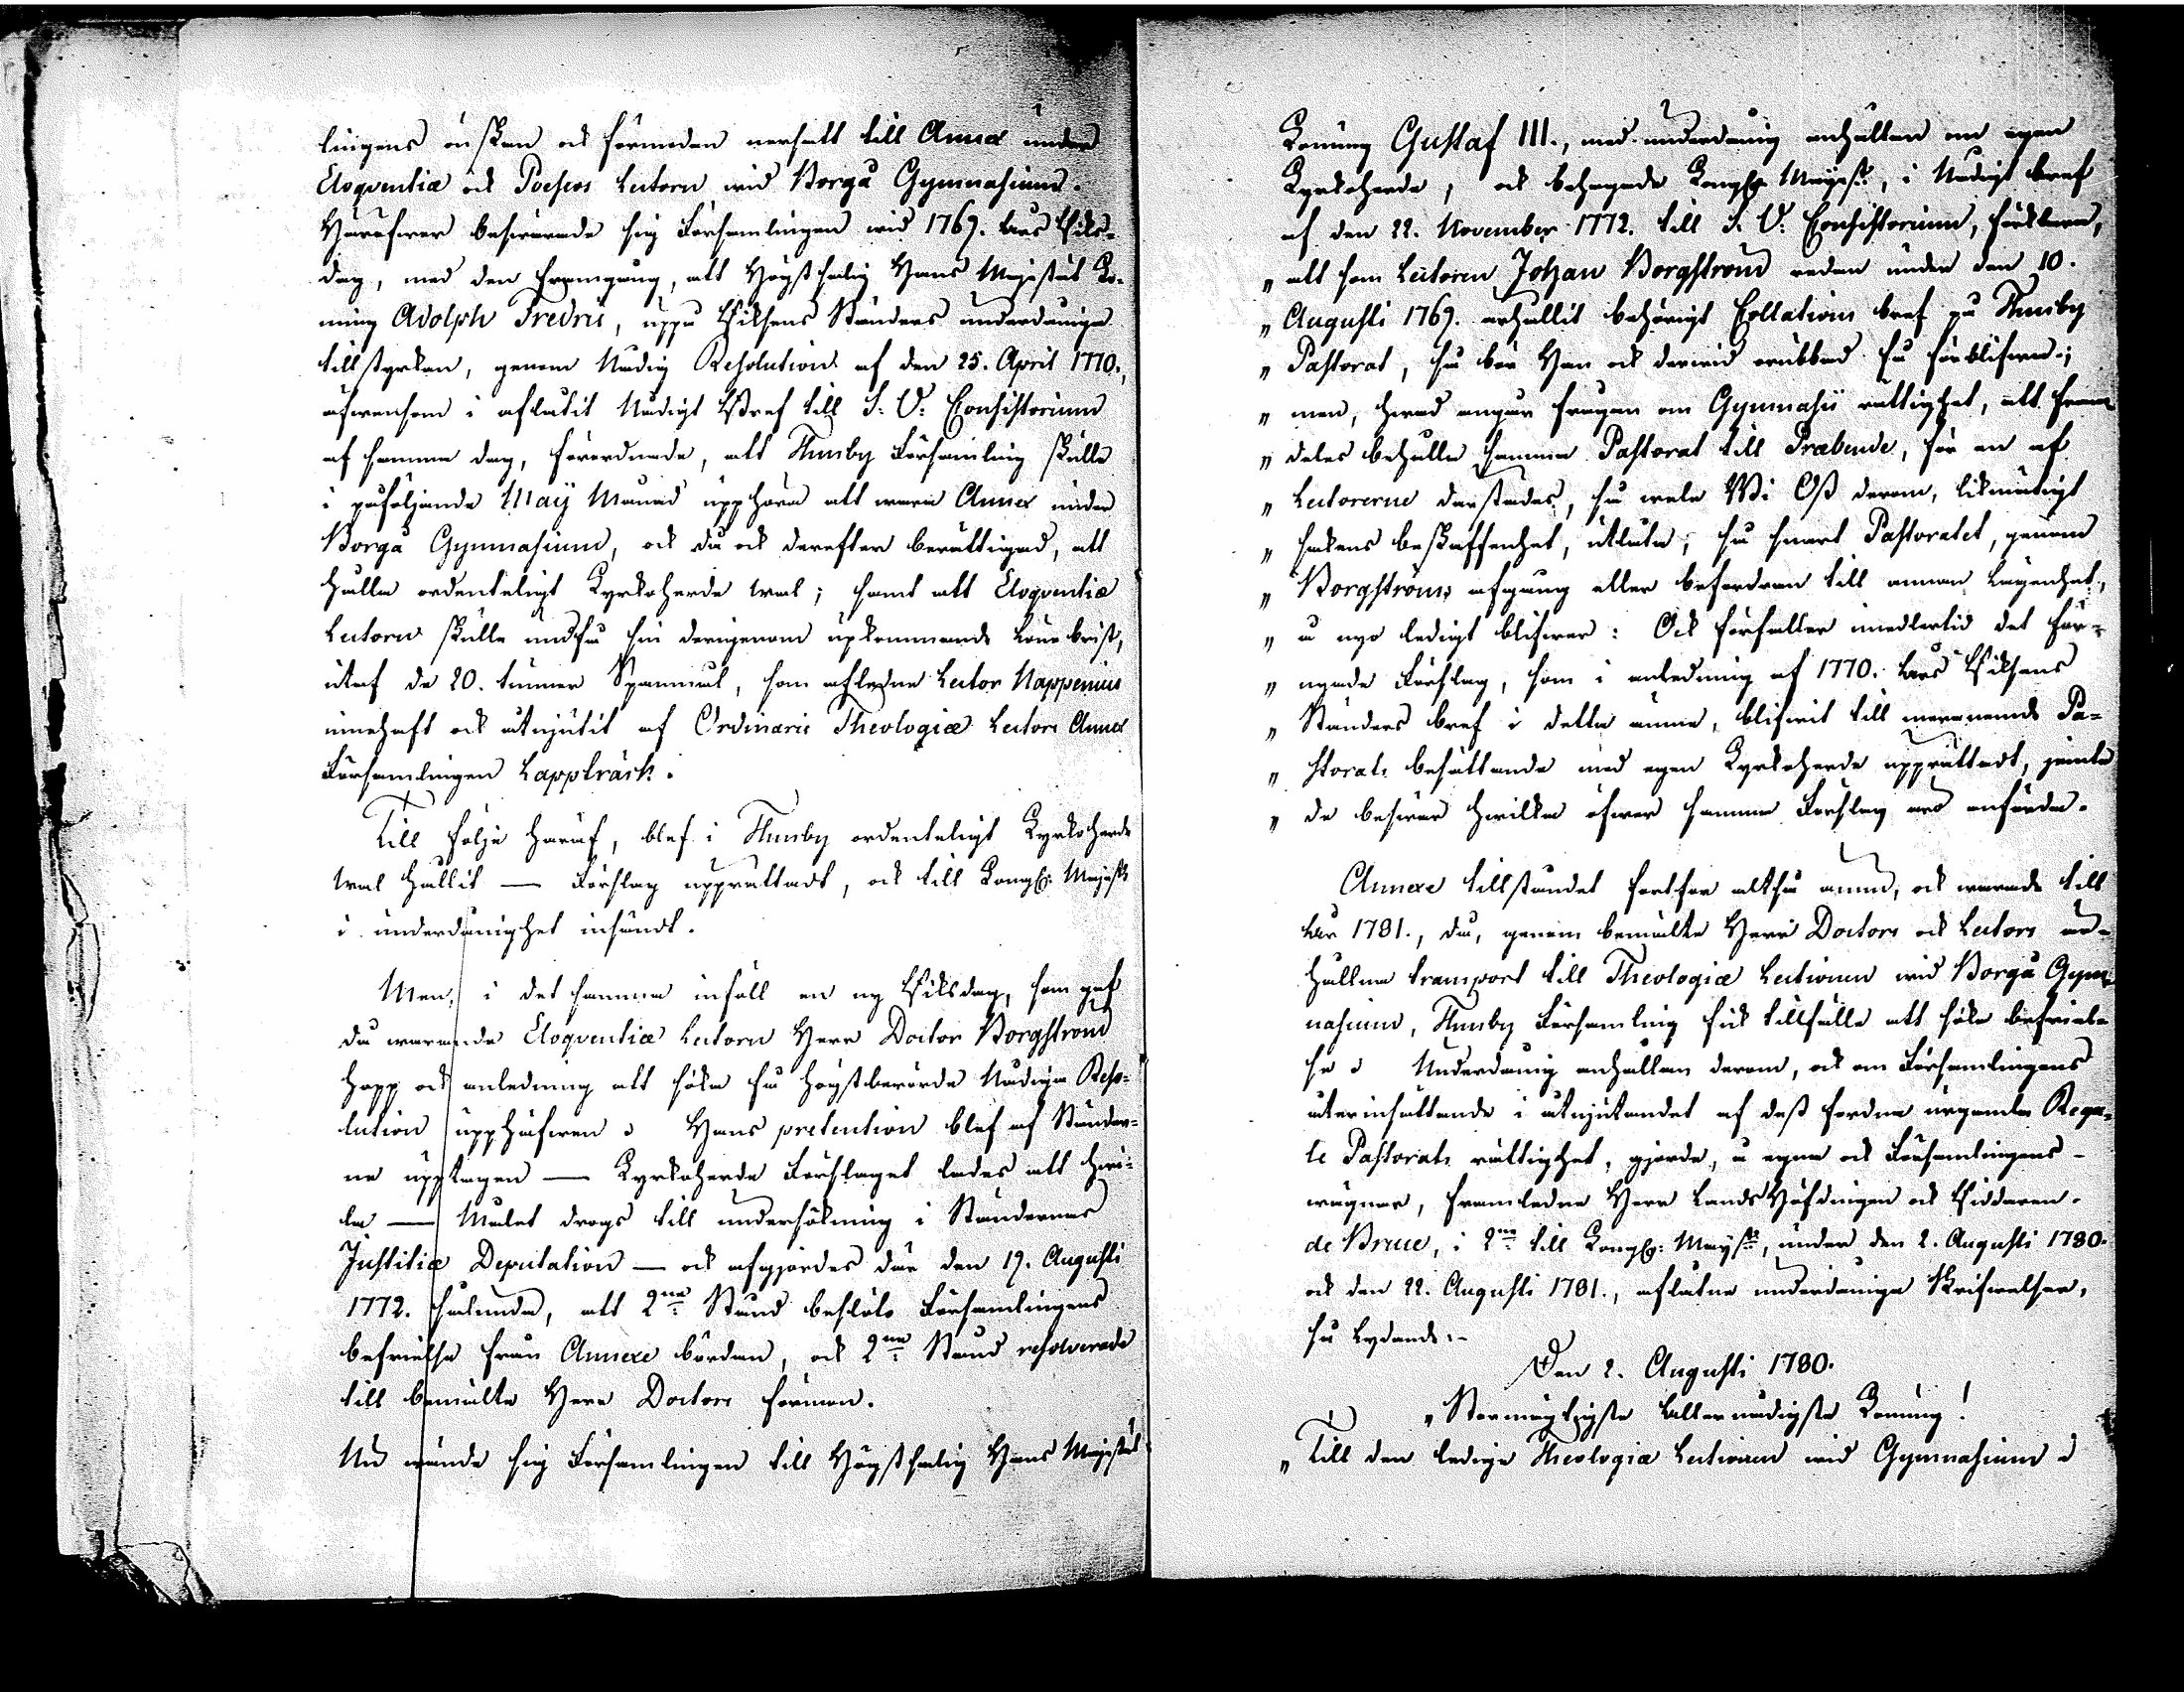 lingens önskan och förmodan versatt till Annex under
Eloqventiæ och Poëseos Lectorn wid Borgå Gymnasium.
Häröfwer beswärade sig Församlingen wid 1769. års Riks-
dag, med den framgång, att Högstsalig Hans Majestät Ko-
nung Adolph Fredric, uppå Riksens Ständers underdåniga
tillstyrkan, genom Nådig Resolution af den 25. April 1770.,
äfwensom i aflåtit Nådigt Bref till S: V: Consistorium
af samma dag, förordnade, att Thusby Församling skulle
i påföljande Maij Månad upphöra att wara Annex under
Borgå Gymnasium, och då och derefter berättigad, att
hålla ordenteligt Kyrkoherde wal; samt att Eloqventiæ
Lectorn skulle undfå sin derigenom upkommande Löne brist,
utaf de 20. tunnor Spanmål, som afledne Lector Nappenius
innehaft och åtnjutit af Ordinarie Theologiæ Lectors Annex
Församlingen Lappträsk.
Till följe häraf, blef i Thusby ordenteligt Kyrkoherde
wal hållit — Förslag upprättadt, och till Kongl: Majest:
i underdånighet insändt.
Men, i det samma inföll en ny Riksdag, som gaf
då warande Eloqventiæ Lectorn Herr Doctor Borgström
hopp och anledning att söka få högstberörde Nådiga Reso-
lution upphäfwen. Hans pretention blef af Stånder-
ne upptagen — Kyrkoherde Förslaget lades att hwi-
la — Målet drogs till undersökning i Ständernas
Justitiæ Deputation — och afgjordes där den 19. Augusti
1772. sålunda, att 2ne Stånd beslöto Församlingens
befrielse från Annexe bördan, och 2ne Stånd resolverade
till bemälte Herr Doctors förmon.
Nu wände sig Församlingen till Högstsalig Hans Majestät
Konung Gustaf III., med underdånig anhållan om egen
Kyrkoherde, och behagade Kongl: Majest:, i Nådigt bref
af den 22. November 1772. till S. V: Consistorium, förklara,
„ att som Lectoren Johan Borgström redan under den 10.
„ Augusti 1769. erhållit behörigt Collations bref på Thusby
„ Pastorat, så bör Han och derwid orubbad få förblifwa;
„ men, hwad angår frågan om Gymnasii rättighet, att fram-
„ deles behålla samma Pastorat till Præbende, för en af
„ Lectorerne derstädes, så wele Wi Oss derom, likmätigt
„ sakens beskaffenhet, utlåta, så snart Pastoratet, genom
„ Borgströms afgång eller befordran till annan lägenhet,
„ å nyo ledigt blifwer: Och förfaller imedlertid det för-
„ nyade Förslag, som i anledning af 1770. års Riksens
„ Ständers bref i detta ämne, blifwit till mernemde Pa-
„ storats besättande med egen Kyrkoherde upprättadt, jemte
„ de beswär hwilka öfwer samma Förslag äro anförda.
Annexe tillståndet fortfor altså ännu, och warade till
år 1781., då, genom bemälte Herr Doctors och Lectors er-
hållna transport till Theologiæ Lectionen wid Borgå Gym-
nasium, Thusby Församling fick tillfälle att söka befriel-
se. Underdånig anhållan derom, och om Församlingens
återinsättande i åtnjutandet af dess fordna urgamla Rega-
le Pastorats rättighet, gjorde, å egna och Församlingens
wägnar, framledne Herr Lands Höfdingen och Riddaren
de Bruce, i 2ne till Kongl: Majst:, under den 2. Augusti 1780.
och den 22. Augusti 1781., aflåtna underdåniga Skrifwelser,
så lydande:-
Den 2. Augusti 1780.
„Stormägtigste Allernådigste Konung!
„Till den ledige Theologiæ Lectionen wid Gymnasium i